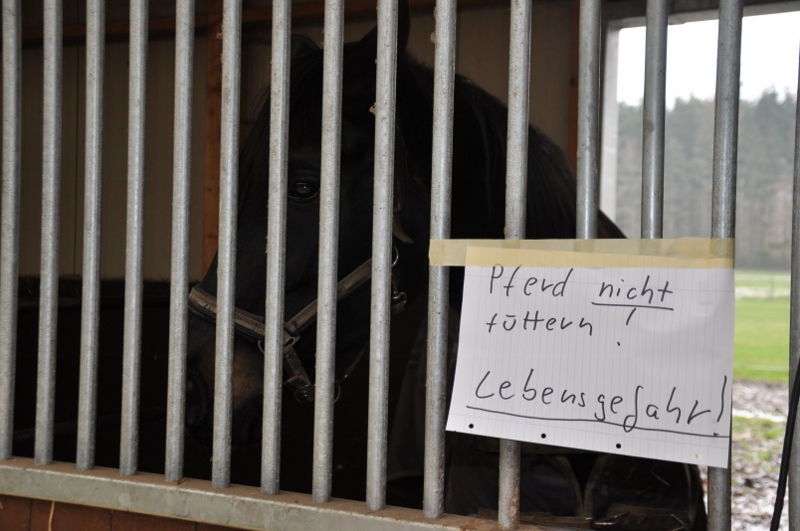 Pferd nicht
füttern!
Lebensgefahr!